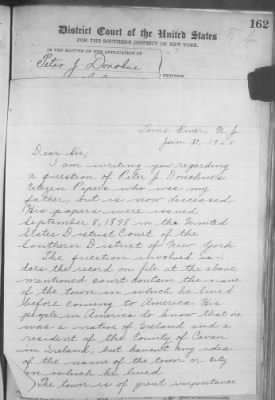 162
District Court of the United States
FOR THE SOUTHERN DISTRICT OF NEW YORK.
IN THE MATTER OF THE APPLICATION OF
Peter J Donohue
PETITION.
Toms River, N. J.
Jan
Dear Sir;
I am writing you regarding
a question of Peter J Donohue's
Citizen Papers who was my
father, but is now deceased
His papers were issued
September 8, 1898 in the United
States District Court of the
Southern District of New York
The question involved is-
does the record on file at the above
mentioned court contain the name
of the town in which he lived
before coming to America His
people in America do know that he
was a native of Ireland and a
resident of the County of Cavan
in Ireland, but havent any idea
of the name of the town or city
in which he lived
The town is of great importance